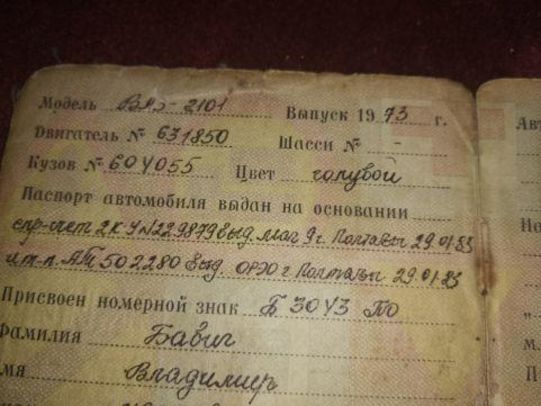 Модель ВАЗ-2101 Выпуск 1973 г.
Двигатель № 631850 Шасси № -
Кузов № 604055 Цвет голубой
Паспорт автомобиля выдан на основании
спр-счет 2КУ №229879 выд. маг 9 г. Полтавы 29.01.83
и т.п. АТ 502280 выд ОРЭО г Полтавы 29.01.83
Присвоен номерной знак Б 3043 ПО
Фамилия Бабич
мя Владимир
Авт
На
м.
П